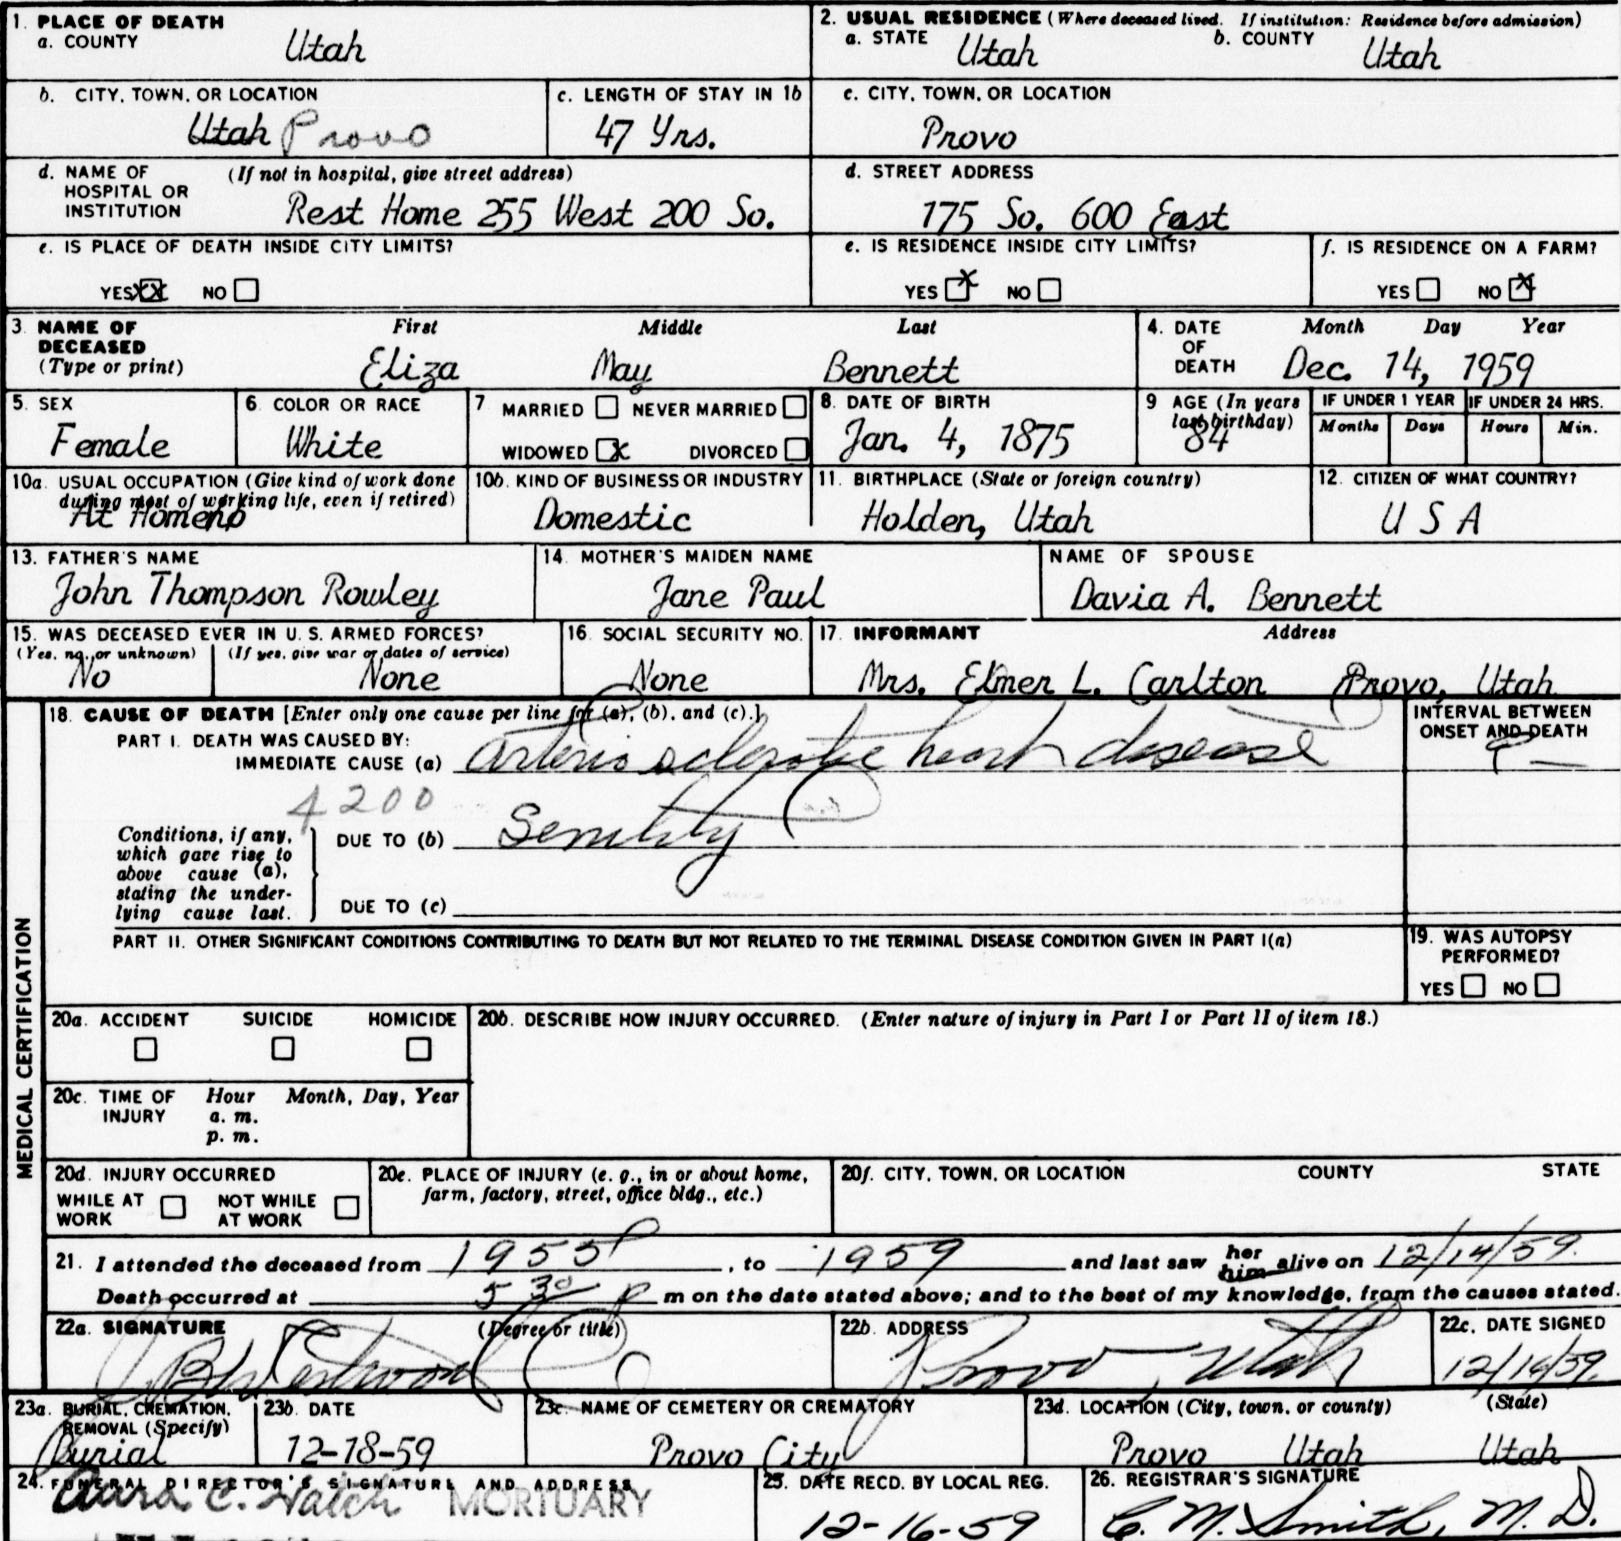 1. PLACE OF DEATH
a. COUNTY
Utah
2. USUAL RESIDENCE (Where deceased lived. If institution: Residence before admission)
a. STATE Utah b. COUNTY Utah
b. CITY, TOWN, OR LOCATION
Utah Provo
c. LENGTH OF STAY IN 1b
47 Yrs.
c. CITY, TOWN, OR LOCATION
Provo
d. NAME OF HOSPITAL OR INSTITUTION (If not in hospital, give street address)
Rest Home 255 West 200 So.
d. STREET ADDRESS
175 So. 600 East
e. IS PLACE OF DEATH INSIDE CITY LIMITS?
YES XX NO
e. IS RESIDENCE INSIDE CITY LIMITS?
YES X NO
f. IS RESIDENCE ON A FARM?
YES NO X
3. NAME OF DECEASED (Type or print)
First Middle Last
Eliza May Bennett
4. DATE OF DEATH Month Day Year
Dec. 14, 1959
5. SEX
Female
6. COLOR OR RACE
White
7 MARRIED NEVER MARRIED
WIDOWED X DIVORCED
8. DATE OF BIRTH
Jan. 4, 1875
9 AGE (In years last birthday)
84
IF UNDER 1 YEAR IF UNDER 24 HRS.
Months Days Hours Min.
10a. USUAL OCCUPATION (Give kind of work done during most of working life, even if retired)
At Home
10b. KIND OF BUSINESS OR INDUSTRY
Domestic
11. BIRTHPLACE (State or foreign country)
Holden, Utah
12. CITIZEN OF WHAT COUNTRY?
U S A
13. FATHER'S NAME
John Thompson Rowley
14. MOTHER'S MAIDEN NAME
Jane Paul
NAME OF SPOUSE
Davia A. Bennett
15. WAS DECEASED EVER IN U. S. ARMED FORCES?
(Yes, no, or unknown) (If yes, give war or dates of service)
No None
16. SOCIAL SECURITY NO.
None
17. INFORMANT Address
Mrs. Elmer L. Carlton Provo, Utah
MEDICAL CERTIFICATION
18. CAUSE OF DEATH [Enter only one cause per line for (a), (b), and (c).]
PART I. DEATH WAS CAUSED BY:
IMMEDIATE CAUSE (a) Arterio sclerotic heart disease
INTERVAL BETWEEN ONSET AND DEATH
?
4200
Conditions, if any, which gave rise to above cause (a), stating the underlying cause last.
DUE TO (b) Senility
DUE TO (c)
PART II. OTHER SIGNIFICANT CONDITIONS CONTRIBUTING TO DEATH BUT NOT RELATED TO THE TERMINAL DISEASE CONDITION GIVEN IN PART I(a)
19. WAS AUTOPSY PERFORMED?
YES NO
20a. ACCIDENT SUICIDE HOMICIDE
20b. DESCRIBE HOW INJURY OCCURRED. (Enter nature of injury in Part I or Part II of item 18.)
20c. TIME OF INJURY Hour Month, Day, Year
a. m.
p. m.
20d. INJURY OCCURRED
WHILE AT WORK NOT WHILE AT WORK
20e. PLACE OF INJURY (e. g., in or about home, farm, factory, street, office bldg., etc.)
20f. CITY, TOWN, OR LOCATION COUNTY STATE
21. I attended the deceased from 1955, to 1959 and last saw her him alive on 12/14/59.
Death occurred at 5 30 P m on the date stated above; and to the best of my knowledge, from the causes stated.
22a. SIGNATURE (Degree or title)
Westwood
22b. ADDRESS
Provo, Utah
22c. DATE SIGNED
12/16/59.
23a. BURIAL, CREMATION, REMOVAL (Specify)
Burial
23b. DATE
12-18-59
23c. NAME OF CEMETERY OR CREMATORY
Provo City
23d. LOCATION (City, town, or county) (State)
Provo Utah Utah
24. FUNERAL DIRECTOR'S SIGNATURE AND ADDRESS
C. Hatch MORTUARY
25. DATE RECD. BY LOCAL REG.
12-16-59
26. REGISTRAR'S SIGNATURE
C. M. Smith, M. D.